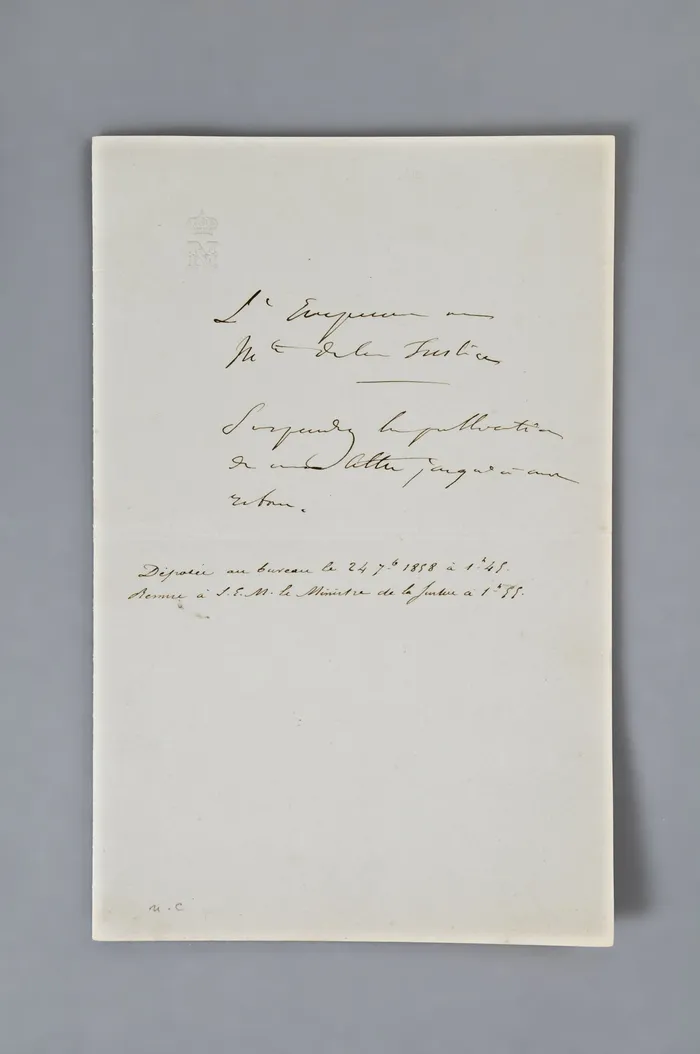 M
L' Empereur au
Mtre de la Justice
Suspendez la publication
de ma lettre jusqu'à mon
retour.
Déposée au bureau le 24 7b 1858 à 1h 45.
Remise à S.E.M. le Ministre de la Justice à 1h 55.
M - C